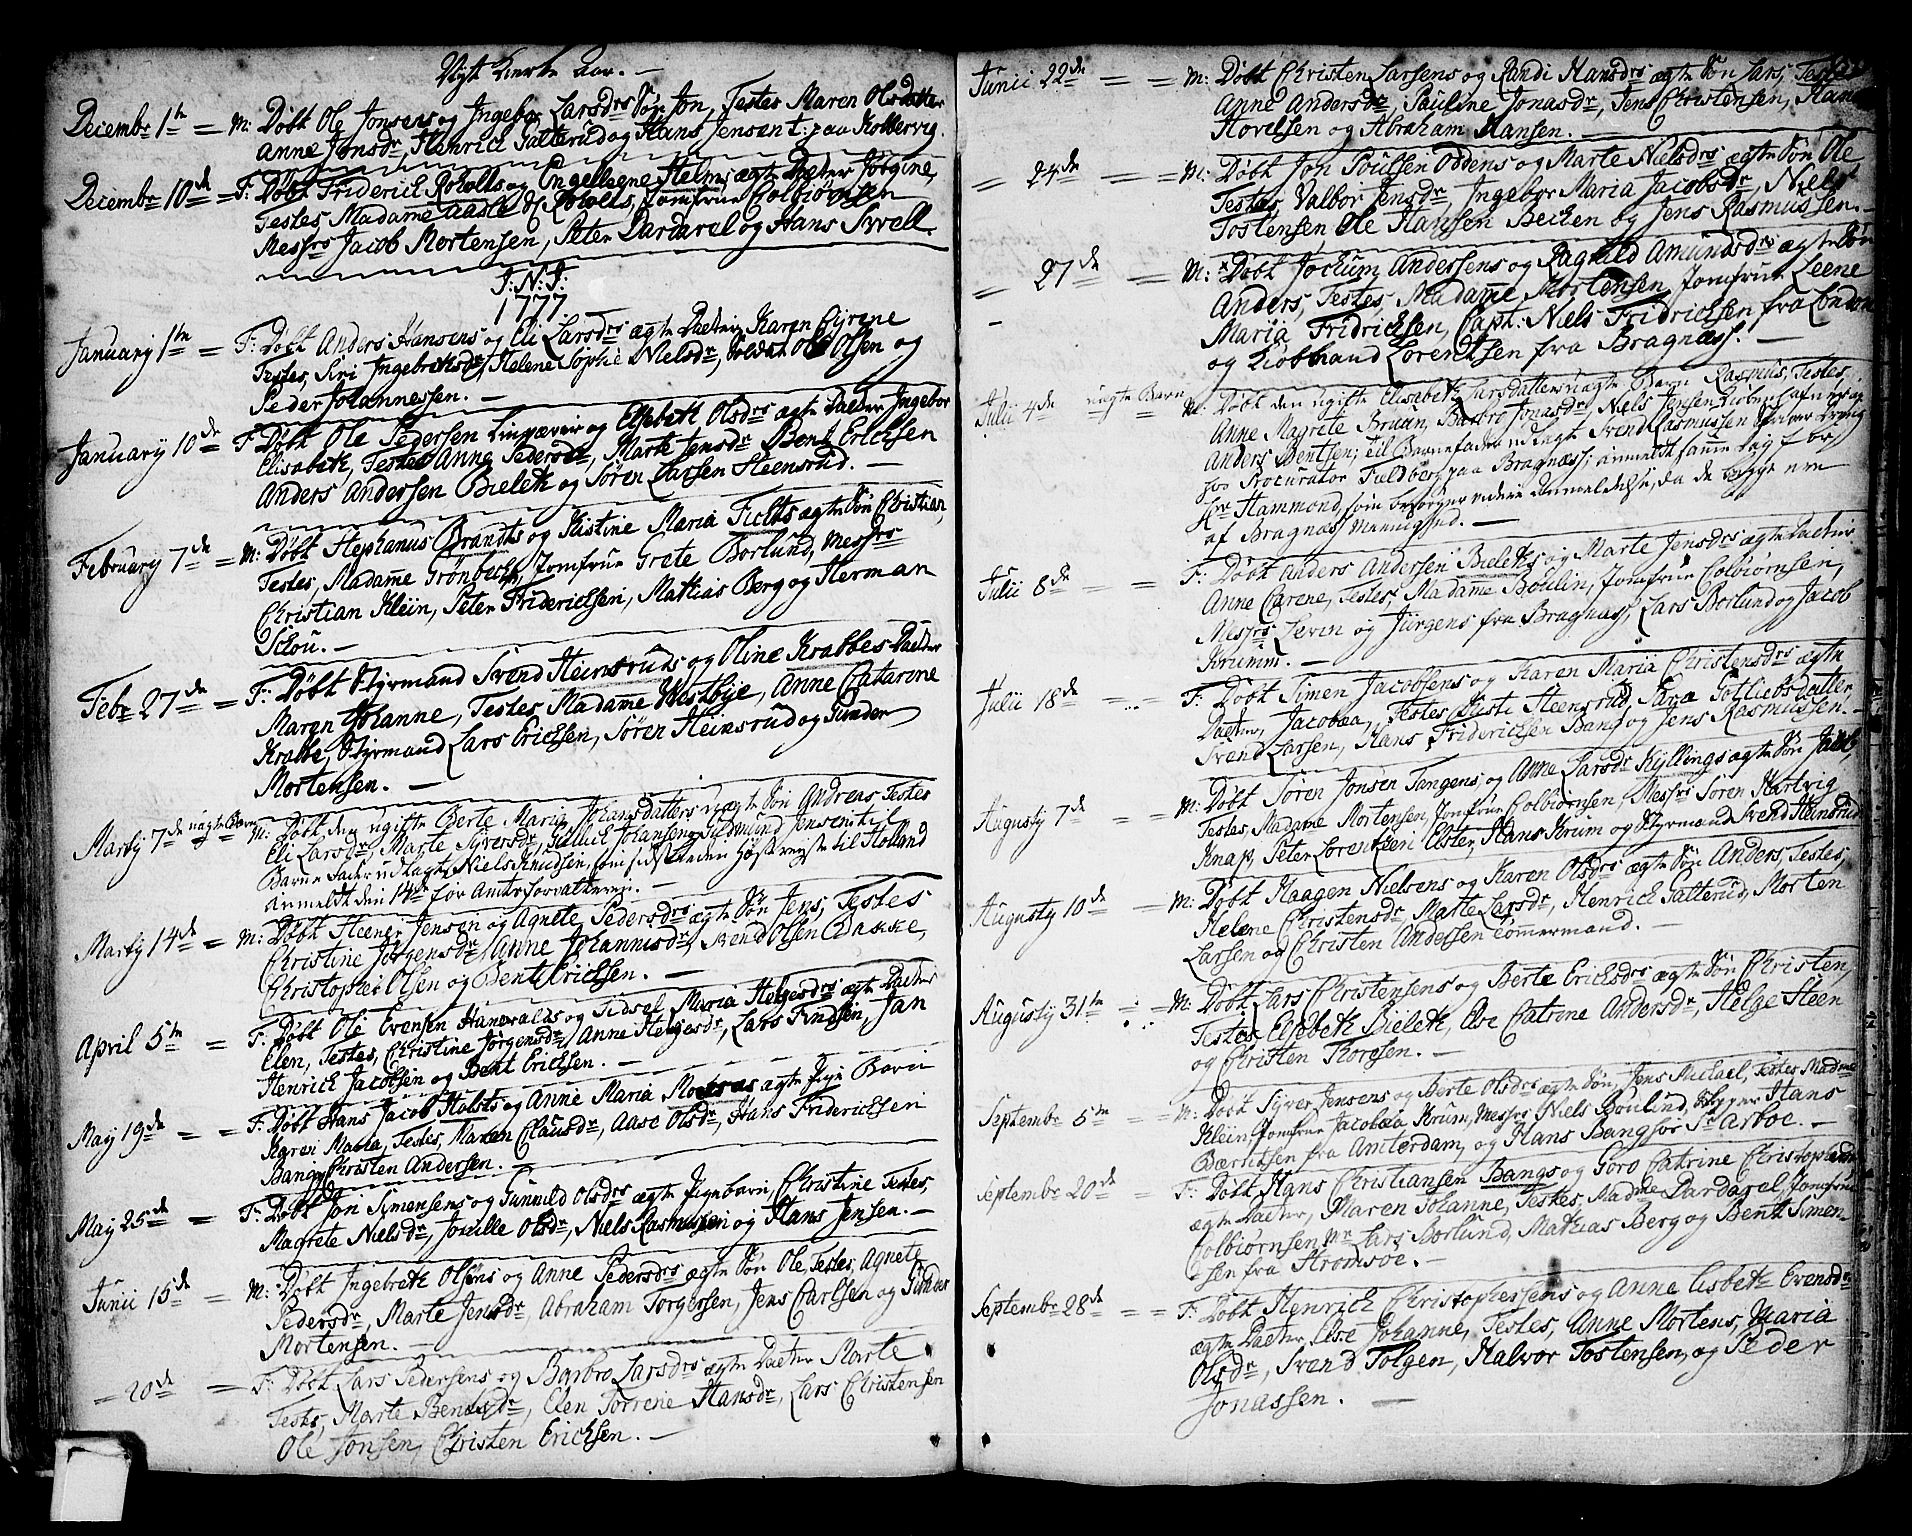 Nyt Kirke Aar. —
Decembr 1te = M: Døbt Ole Jonsens og Ingebor Larsdrs Søn Jon, Testes Maren Olsdatter
Anne Jonsdr, Henrich Sætterud og Hans Jensen t: paa Kobbervig.
Decembr 10de = F: Døbt Friderich Roholts og Engellene Helms ægte Datter Jørgine,
Testes Madame Roholt, Jomfrue Colbiørnsen
Messrs Jacob Mortensen, Peter Dardarel og Hans Svell.
I: N: I:
1777
January 1te = F: Døbt Anders Hansens og Eli Larsdrs ægte Datter Karen Cyrene
Testes, Siri Ingebretsdr, Helene Sophie Nielsdr, Soldat Ole Olsen og
Peder Johannessen. —
January 10de F: Døbt Ole Pedersen og Elsebeth Olsdrs ægte Datter Ingebor
Elisabeth, Testes Anne Pedersdr, Marte Jensdr Bent Erichsen
Anders Andersen Bieleth og Søren Larsen Steensrud. —
February 7de = M: Døbt Stephanus Brandts og Kistine Maria Fichts ægte Søn Christian,
Testes, Madame Grønbech, Jomfrue Grete Borlund, Messrs
Christian Klein, Peter Friderichsen, Mathias Berg og Herman
Schou. —
Febr 27de = F: Døbt Styrmand Svend Heinsruds og Oline Krabbes Datter
Maren Johanne, Testes Madame Westbye, Anne Catarine
Krabbe, Styrmand Lars Erichsen, Søren Heinsrud og Gunder
Mortensen. —
Marty 7de uægte Barn M: Døbt den ugifte Berte Maria Johansdatters uægte Søn Andreas Testes
Eli Larsdr, Marte Syversdr, Gulluk Johansen, Guldmund Jensen til
Barne Fader udlagt Niels Knudsen, som sidstleden Høst reyste til Holland
Anmeldt den 14de for Amtsforvalteren. —
Marty 14de = M: Døbt Steener Jensøn og Agnete Pedersdrs ægte Søn Jens, Testes
Christine Jørgensdr, Anne Johannisdr, Svend Olsen Bakke,
Christopher Olsen og Bent Erichsen. —
April 5te = F: Døbt Ole Evensen Hanevalds og Sidsel Maria Helgesdrs ægte Datter
Elen, Testes, Christine Jørgensdr, Anne Helgesdr, Lars Findsen, Jan
Henrich Jacobsen og Bent Erichsen. —
May 19de = = F: Døbt Hans Jacob Holsts og Anne Maria ægte Pige Barn
Karen Maria, Testes, Maren Clausdr, Aase Olsdr, Hans Friderichsen
Bang, Christen Andersen. —
May 25de = F: Døbt Jon Simensens og Gunnild Olsdrs ægte Pigebarn, Christine Testes,
Magrete Nielsdr, Jonille Olsdr, Niels Rasmusen og Hans Jensen. —
Junii 15de = M: Døbt Ingebreth Olsens og Anne Pedersdrs ægte Søn Ole, Testes, Agnete
Pedersdr, Marte Jensdr, Abraham Torgersen, Jens Carlsen og Gunder
Mortensen. —
= 20de = F: Døbt Lars Pedersens og Barbro Larsdrs ægte Datter Marte
Testes, Marte Bentsdr, Elen Torrene Hansdr, Lars Christensen
Ole Jonsen, Christen Erichsen. —
Junii 22de = = M: Døbt Christen Larsens og Randi Hansdrs ægte Søn Lars, Testes
Anne Andersdr, Pauline Jonasdr, Jens Christensen, Hans
Hovelsen og Abraham Hansen. —
= 24de = = M: Døbt Jon Poulsen Oddens og Marte Nielsdrs ægte Søn Ole
Testes, Valbor Jensdr, Ingebor Maria Jacobsdr, Niels
Tostensen, Ole Hansen Bechen og Jens Rasmussen. —
= 27de = M: Døbt Jochum Andersens og Ragnild Amundsdrs ægte Søn
Anders, Testes, Madame Mortensen, Jomfrue Leene
Maria Fridrichsen, Capt: Niels Fridrichsen fra London
og Kiøbmand Lorentsen fra Bragnæss. —
Julii 4de uægte Barn M: Døbt den ugifte Elisabeth Larsdatters uægte Barn Rasmus, Testes,
Anne Magrete Bruun, Barbro Jonasdr, Niels Jensen
Anders Bentsen; til Barnefader udlagt Svend Rasmussen
hos Procurator Fieldberg paa Bragnæss; anmeldt samme Dag for
Hr Hammond, som besørger videre Anmeldelse, da de begge ere
af Bragnæs Meenighed. —
Julii 8de = = F: Døbt Anders Andersen Bieleths og Marte Jensdrs ægte Datter
Anne Carene, Testes, Madame Boulin, Jomfrue Colbiørnsen,
Messrs Levin og Jürgens fra Bragnæss, Lars Borlund og Jacob
Krumm. —
Julii 18de = = F: Døbt Simen Jacobsens og Karen Maria Christensdrs ægte
Datter, Jacobæa, Testes, Kirsti Steensrud, Sara Gotliebsdatter
Svend Larsen, Hans Friderichsen Bang og Jens Rasmussen. —
Augusty 7de = = M: Døbt Søren Jonsen Tangens og Anne Larsdr Kyllings ægte Søn Jacob,
Testes Madame Mortensen, Jomfrue Colbiørnsen, Messrs Søren Hartvig
Knap, Peter Lorentzen Elster, Hans Krum og Styrmand Svend Heinsrud
Augusty 10de = M: Døbt Haagen Nielsens og Karen Olsdrs ægte Søn Anders, Testes,
Helene Christensdr, Mætte Larsdr, Henrich Sætterud, Morten
Larsen og Christen Andersen Tømmermand. —
Augusty 31te = M: Døbt Lars Christensens og Berte Erichsdrs ægte Søn Christen,
Testes Elsebeth Bieleth, Else Catrine Andersdr, Helge Steen
og Christen Thoresen. —
Septembr 5te = = M: Døbt Syver Jensens og Berte Olsdrs ægte Søn, Jens Michael, Testes Madme
Klein, Jomfrue Jacobæa Krum, Messrs Niels Boulind, Skipper Hans
Bærntsen fra Amsterdam, og Hans Bang for Sr Arboe. —
Septembr 20de = = F: Døbt Hans Christiansen Bangs og Goro Catrine Christophersdr
ægte Datter, Maren Johanne, Testes, Madme Dardarel, Jomfrue
Colbiørnsen, Mr Lars Borlund, Mathias Berg og Bent Simen-
sen fra Strømsøe. —
Septembr 28de = = F: Døbt Henrich Christophersens og Anne Lisbeth Evensdr
ægte Datter, Else Johanne, Testes, Anne Mortens, Maria
Olsdr, Svend Solgen, Halvor Tostensen, og Peder
Jonassen. —